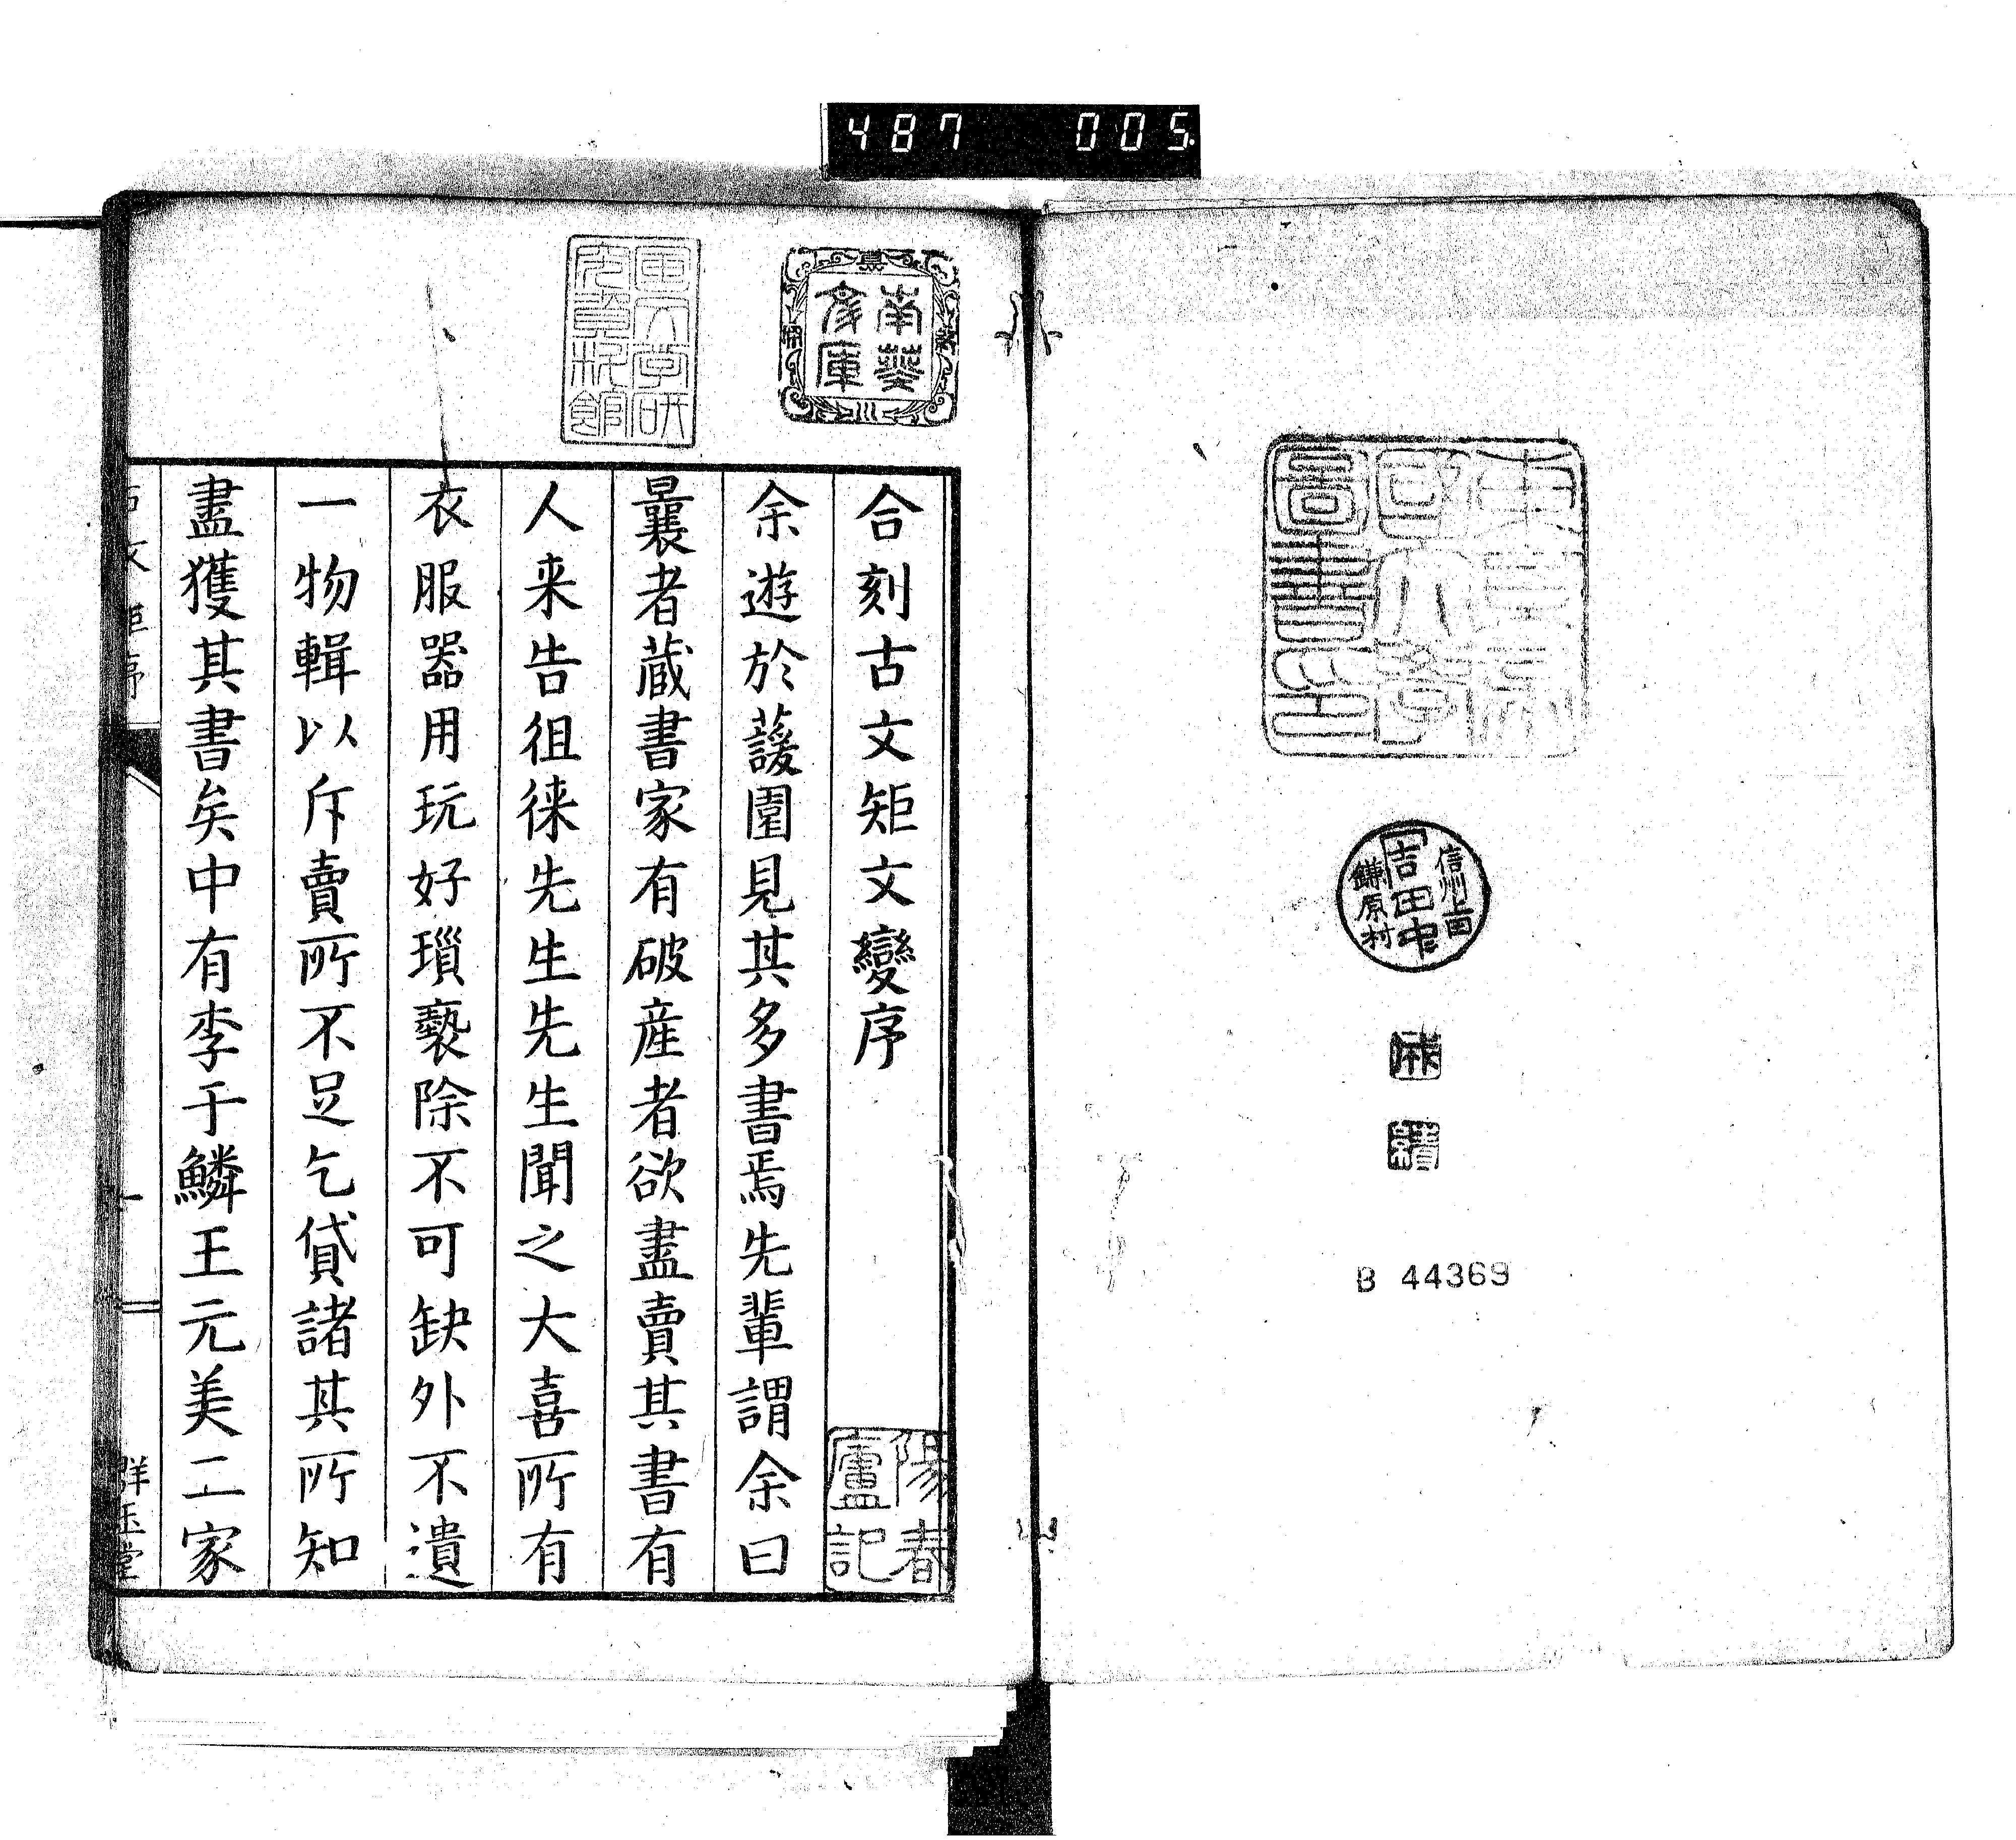 487 005
東京帝國大學圖書印
信州上田
吉田中
鎌原村
B 44369
南葵文庫
合刻古文矩文變序
陽春廬記
余遊於蘐園見其多書焉先輩謂余曰
曩者蔵書家有破産者欲盡賣其書有
人来告徂徠先生先生聞之大喜所有
衣服器用玩好瑣褻除不可缺外不遺
一物輯以斥賣所不足乞貸諸其所知
盡獲其書矣中有李于鱗王元美二家
一
群玉堂